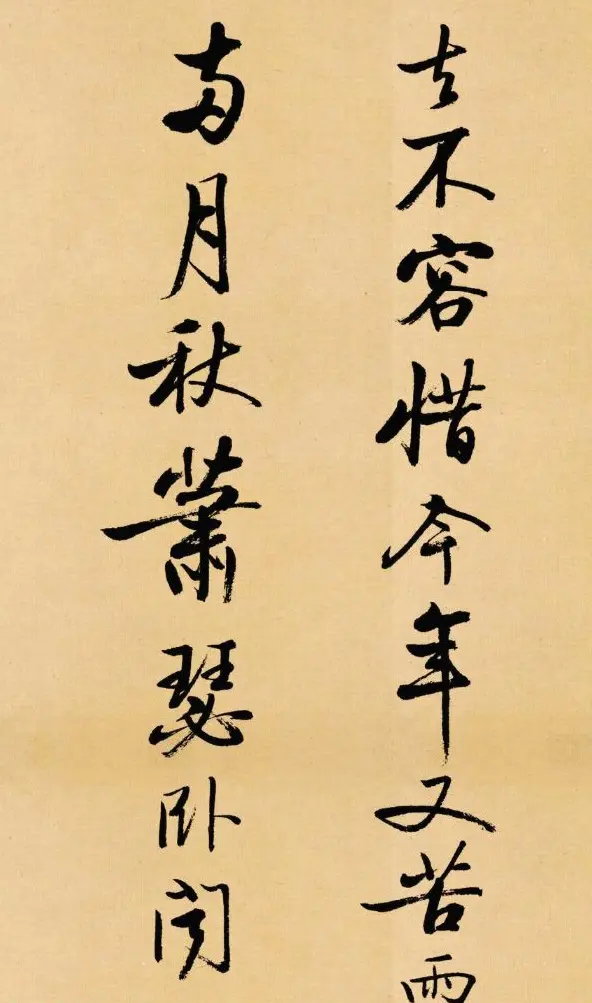 去不容惜今年又苦雨
两月秋萧瑟卧闻